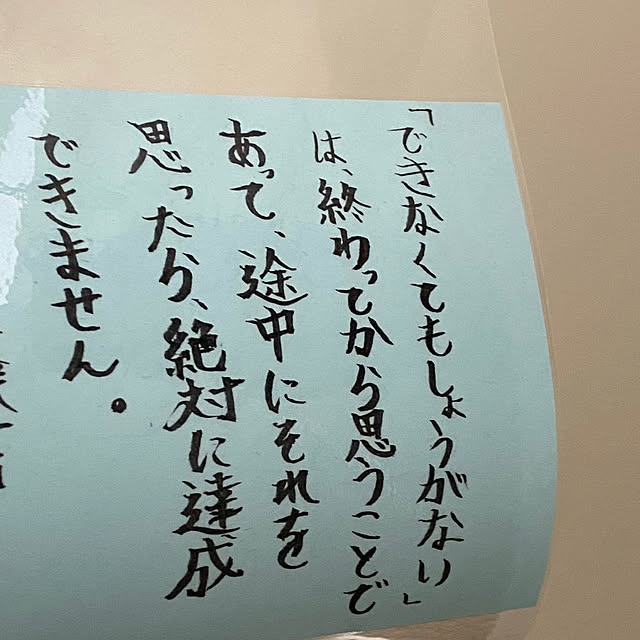 「できなくてもしょうがない」
は、終わってから思うことで
あって、途中にそれを
思ったら、絶対に達成
できません。